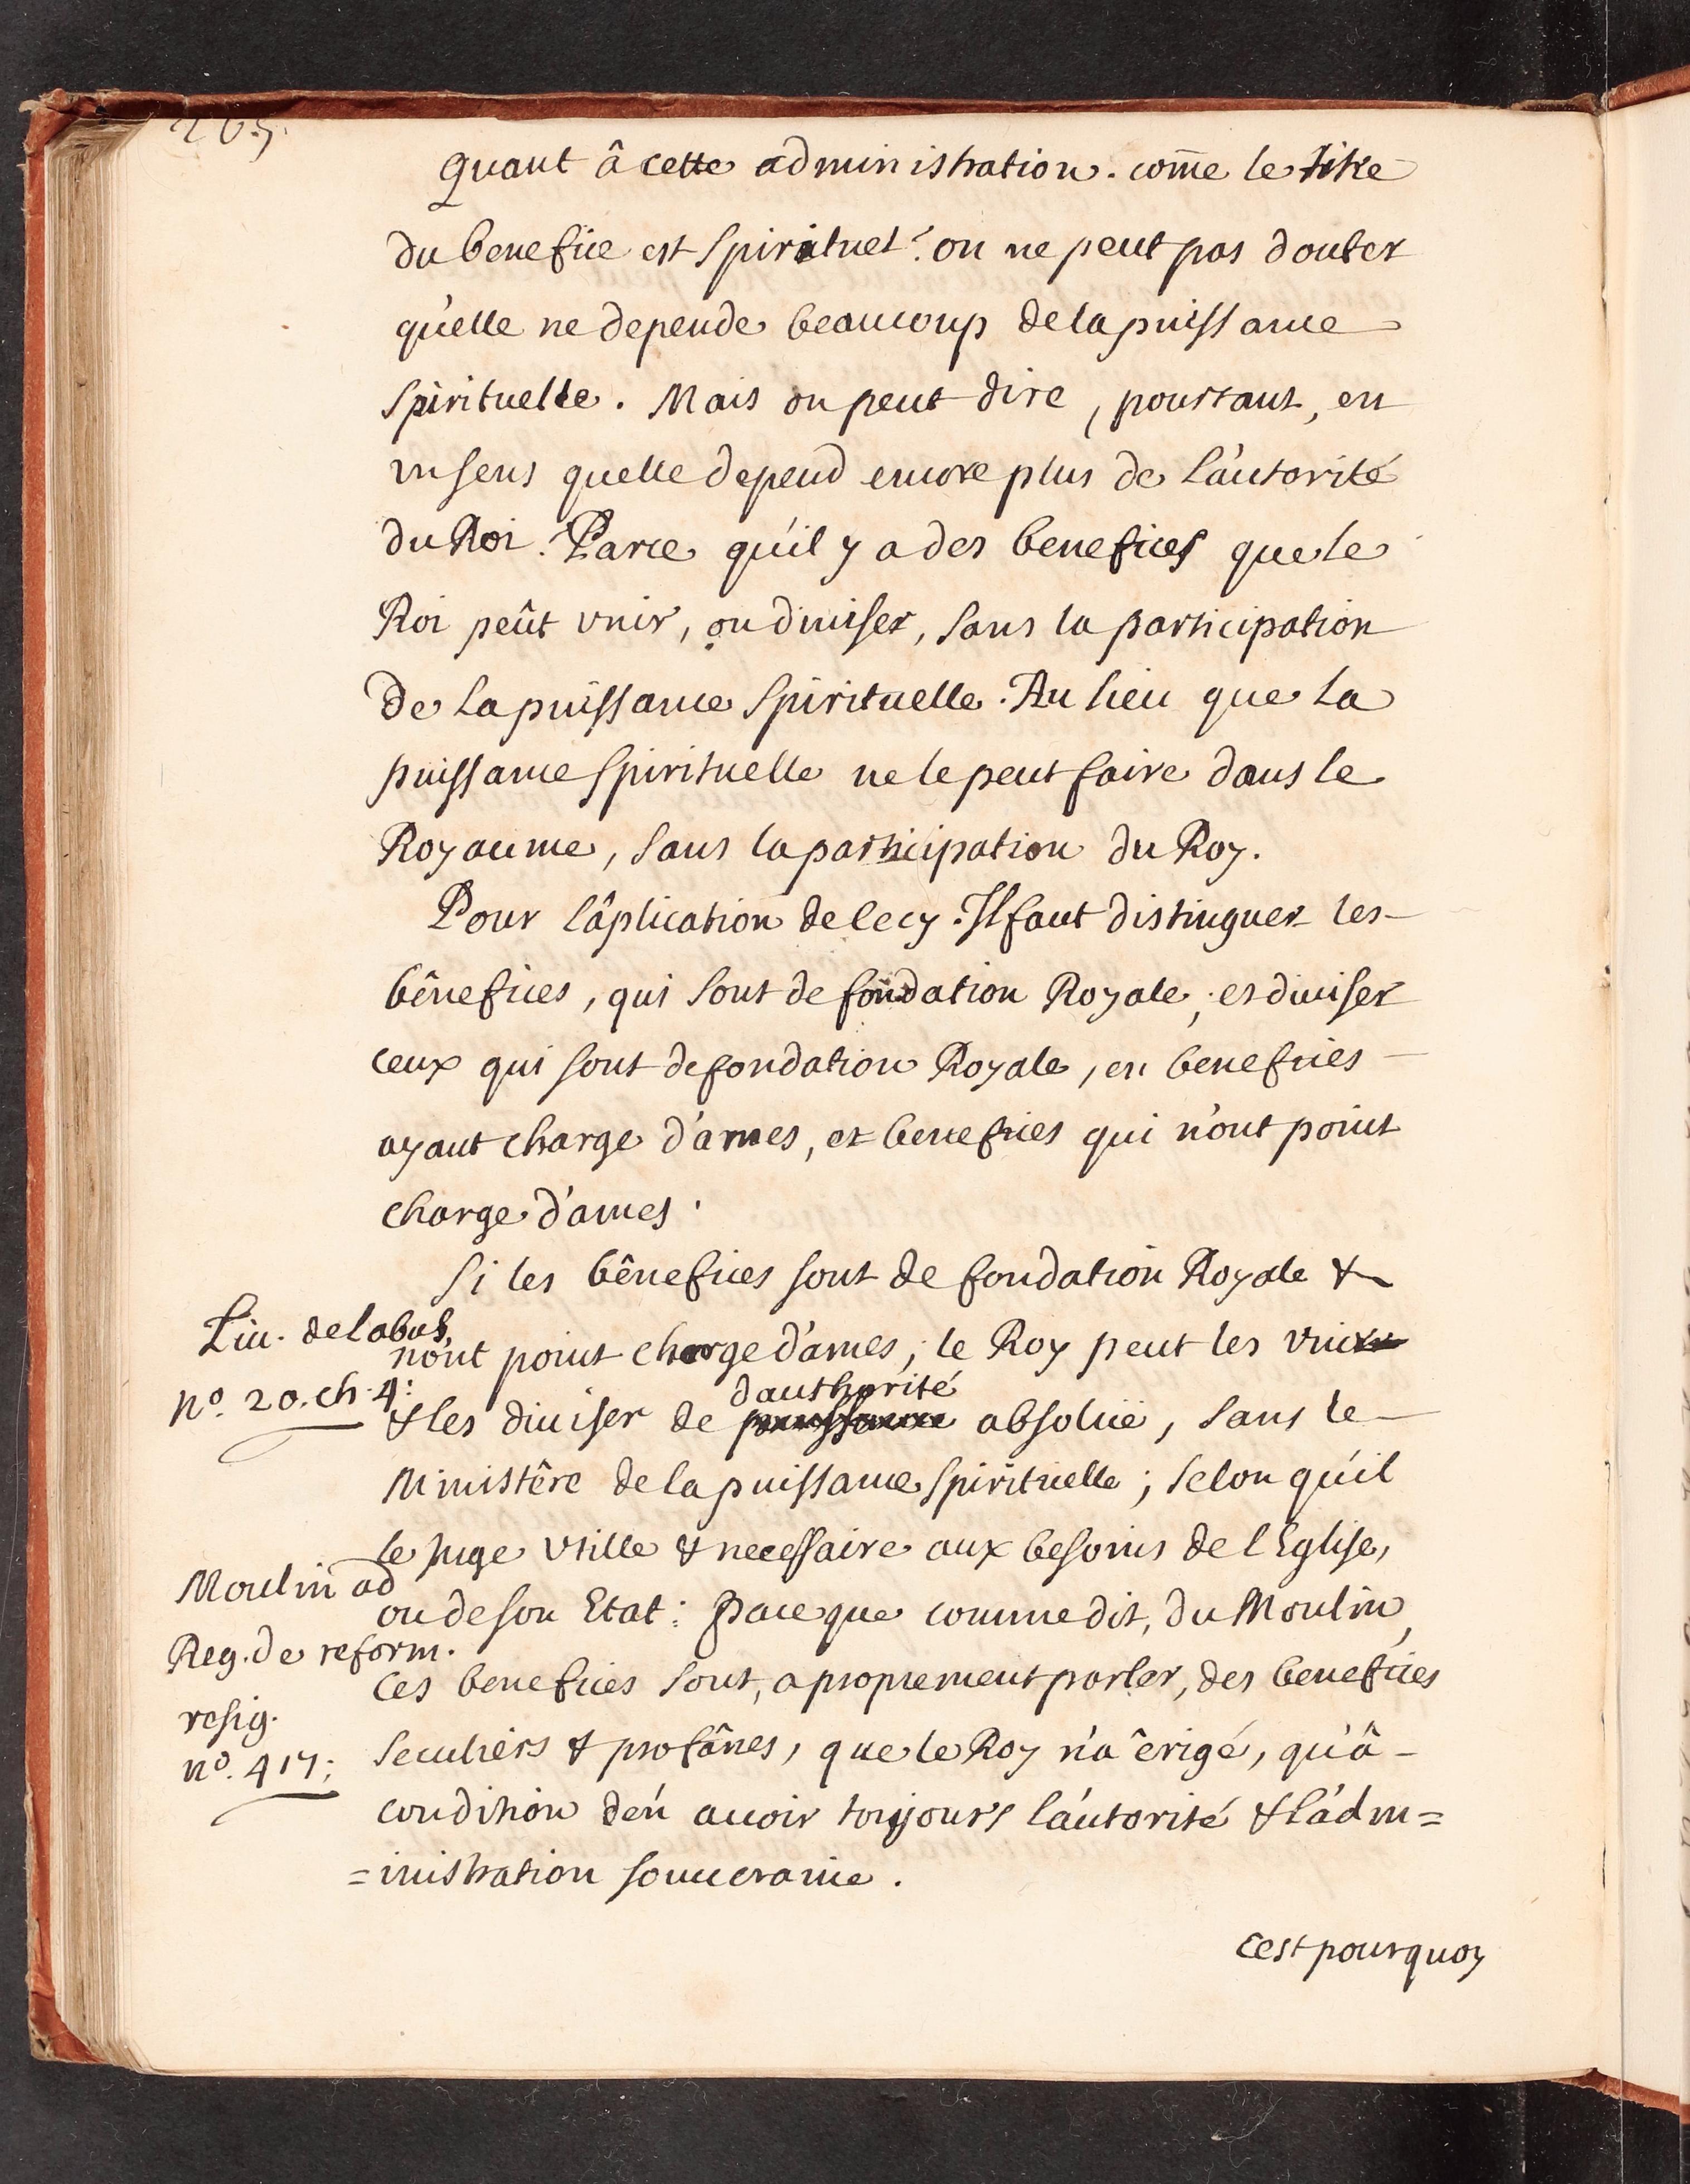 Quant â cette administration. com̃e le titre
du benefice est spirituel: on ne peut pas douter
qu'elle ne depende beaucoup de la puissance
spirituelle. Mais on peut dire, pourtant, en
un sens quelle depend encore plus de l'autorité
du Roi. Parce qu'il y a des benefices que le
Roi peût vnir, ou diuiser, sans la participation
de la puissance spirituelle. Au lieu que la
puissance spirituelle ne le peut faire dans le
Royaume, sans la participation du Roy.
Pour l'âplication de cecy. Il faut distinguer les
bênefices, qui sont de fondation Royale, et diuiser
ceux qui sont de fondation Royale, en benefices
ayant charge d'ames, et benefices qui n'ont point
charge d'ames.
Si les bênefices sont de fondation Royale &
Liu. de l abus,
nont point charge d'ames, le Roy peut les vnir
n.o 20. ch. 4:
d'authorité
& les diuiser de puissance absoluë, sans le
Ministêre de la puissance spirituelle; selon qu'il
le juge vtille & necessaire aux besoins de l Eglise,
Moulin ad
ou de son Etat: Parce que comme dit, du Moulin,
Reg. de reform.
Ces benefices sont, a proprement parler, des benefices
resig.
seculiers & profânes, que le Roy n'a êrigé, qu'â
n.o 417:
condition d'en auoir toujours l'autorité & l'adm=
=inistration souueraine.
Cest pourquoy